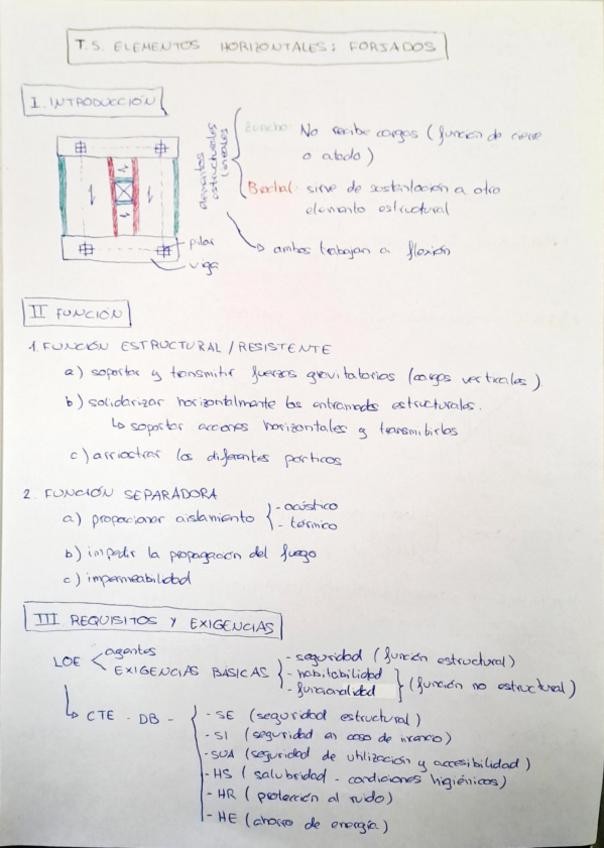 T.5. ELEMENTOS HORIZONTALES: FORJADOS
I. INTRODUCCIÓN
elementos estructurales lineales
Zuncho: No recibe cargas (función de cierre
o atado)
Brochal: sirve de sustentación a otro
elemento estructural
↳ ambos trabajan a flexión
pilar
viga
II FUNCIÓN
1. FUNCIÓN ESTRUCTURAL / RESISTENTE
a) soportar y transmitir fuerzas gravitatorias (cargas verticales)
b) solidarizar horizontalmente los entramados estructurales.
↳ soportar acciones horizontales y transmitirlos
c) arriostrar los diferentes pórticos
2. FUNCIÓN SEPARADORA
a) proporcionar aislamiento
- acústico
- térmico
b) impedir la propagación del fuego
c) impermeabilidad
III REQUISITOS Y EXIGENCIAS
LOE
agentes
EXIGENCIAS BÁSICAS
- seguridad (función estructural)
- habitabilidad
- funcionalidad
(función no estructural)
↳ CTE - DB -
- SE (seguridad estructural)
- SI (seguridad en caso de incendio)
- SUA (seguridad de utilización y accesibilidad)
- HS (salubridad - condiciones higiénicos)
- HR (protección al ruido)
- HE (ahorro de energía)